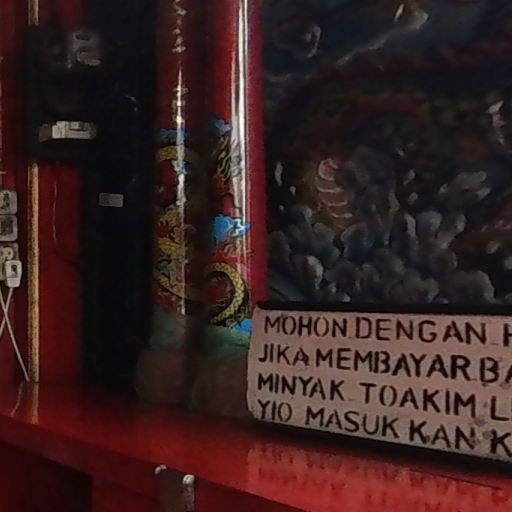 MOHON DENGAN H
JIKA MEMBAYAR BA
MINYAK TOAKIM LI
YIO MASUK KAN K